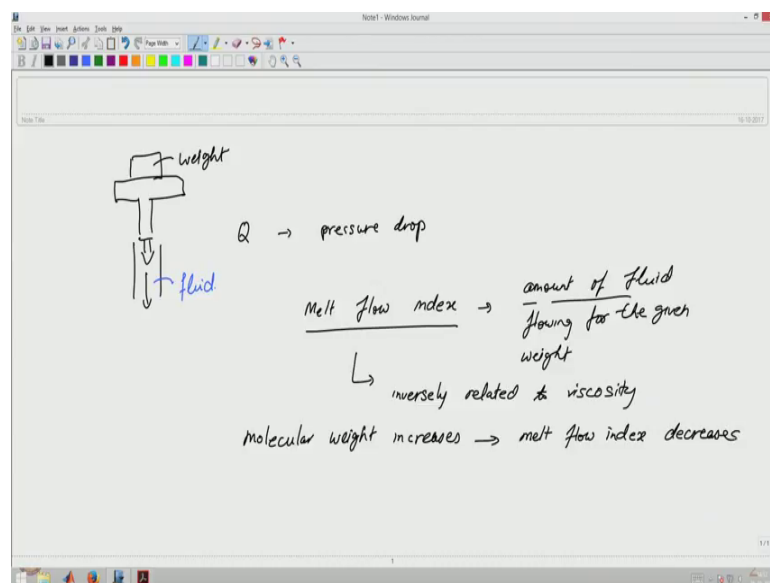 Note1 - Windows Journal
File Edit View Insert Actions Tools Help
Page Width
B I
Note Title
weight
Q → pressure drop
fluid.
Melt flow index → amount of fluid
flowing for the given
weight
inversely related to viscosity
molecular weight increases → melt flow index decreases
1/1
1